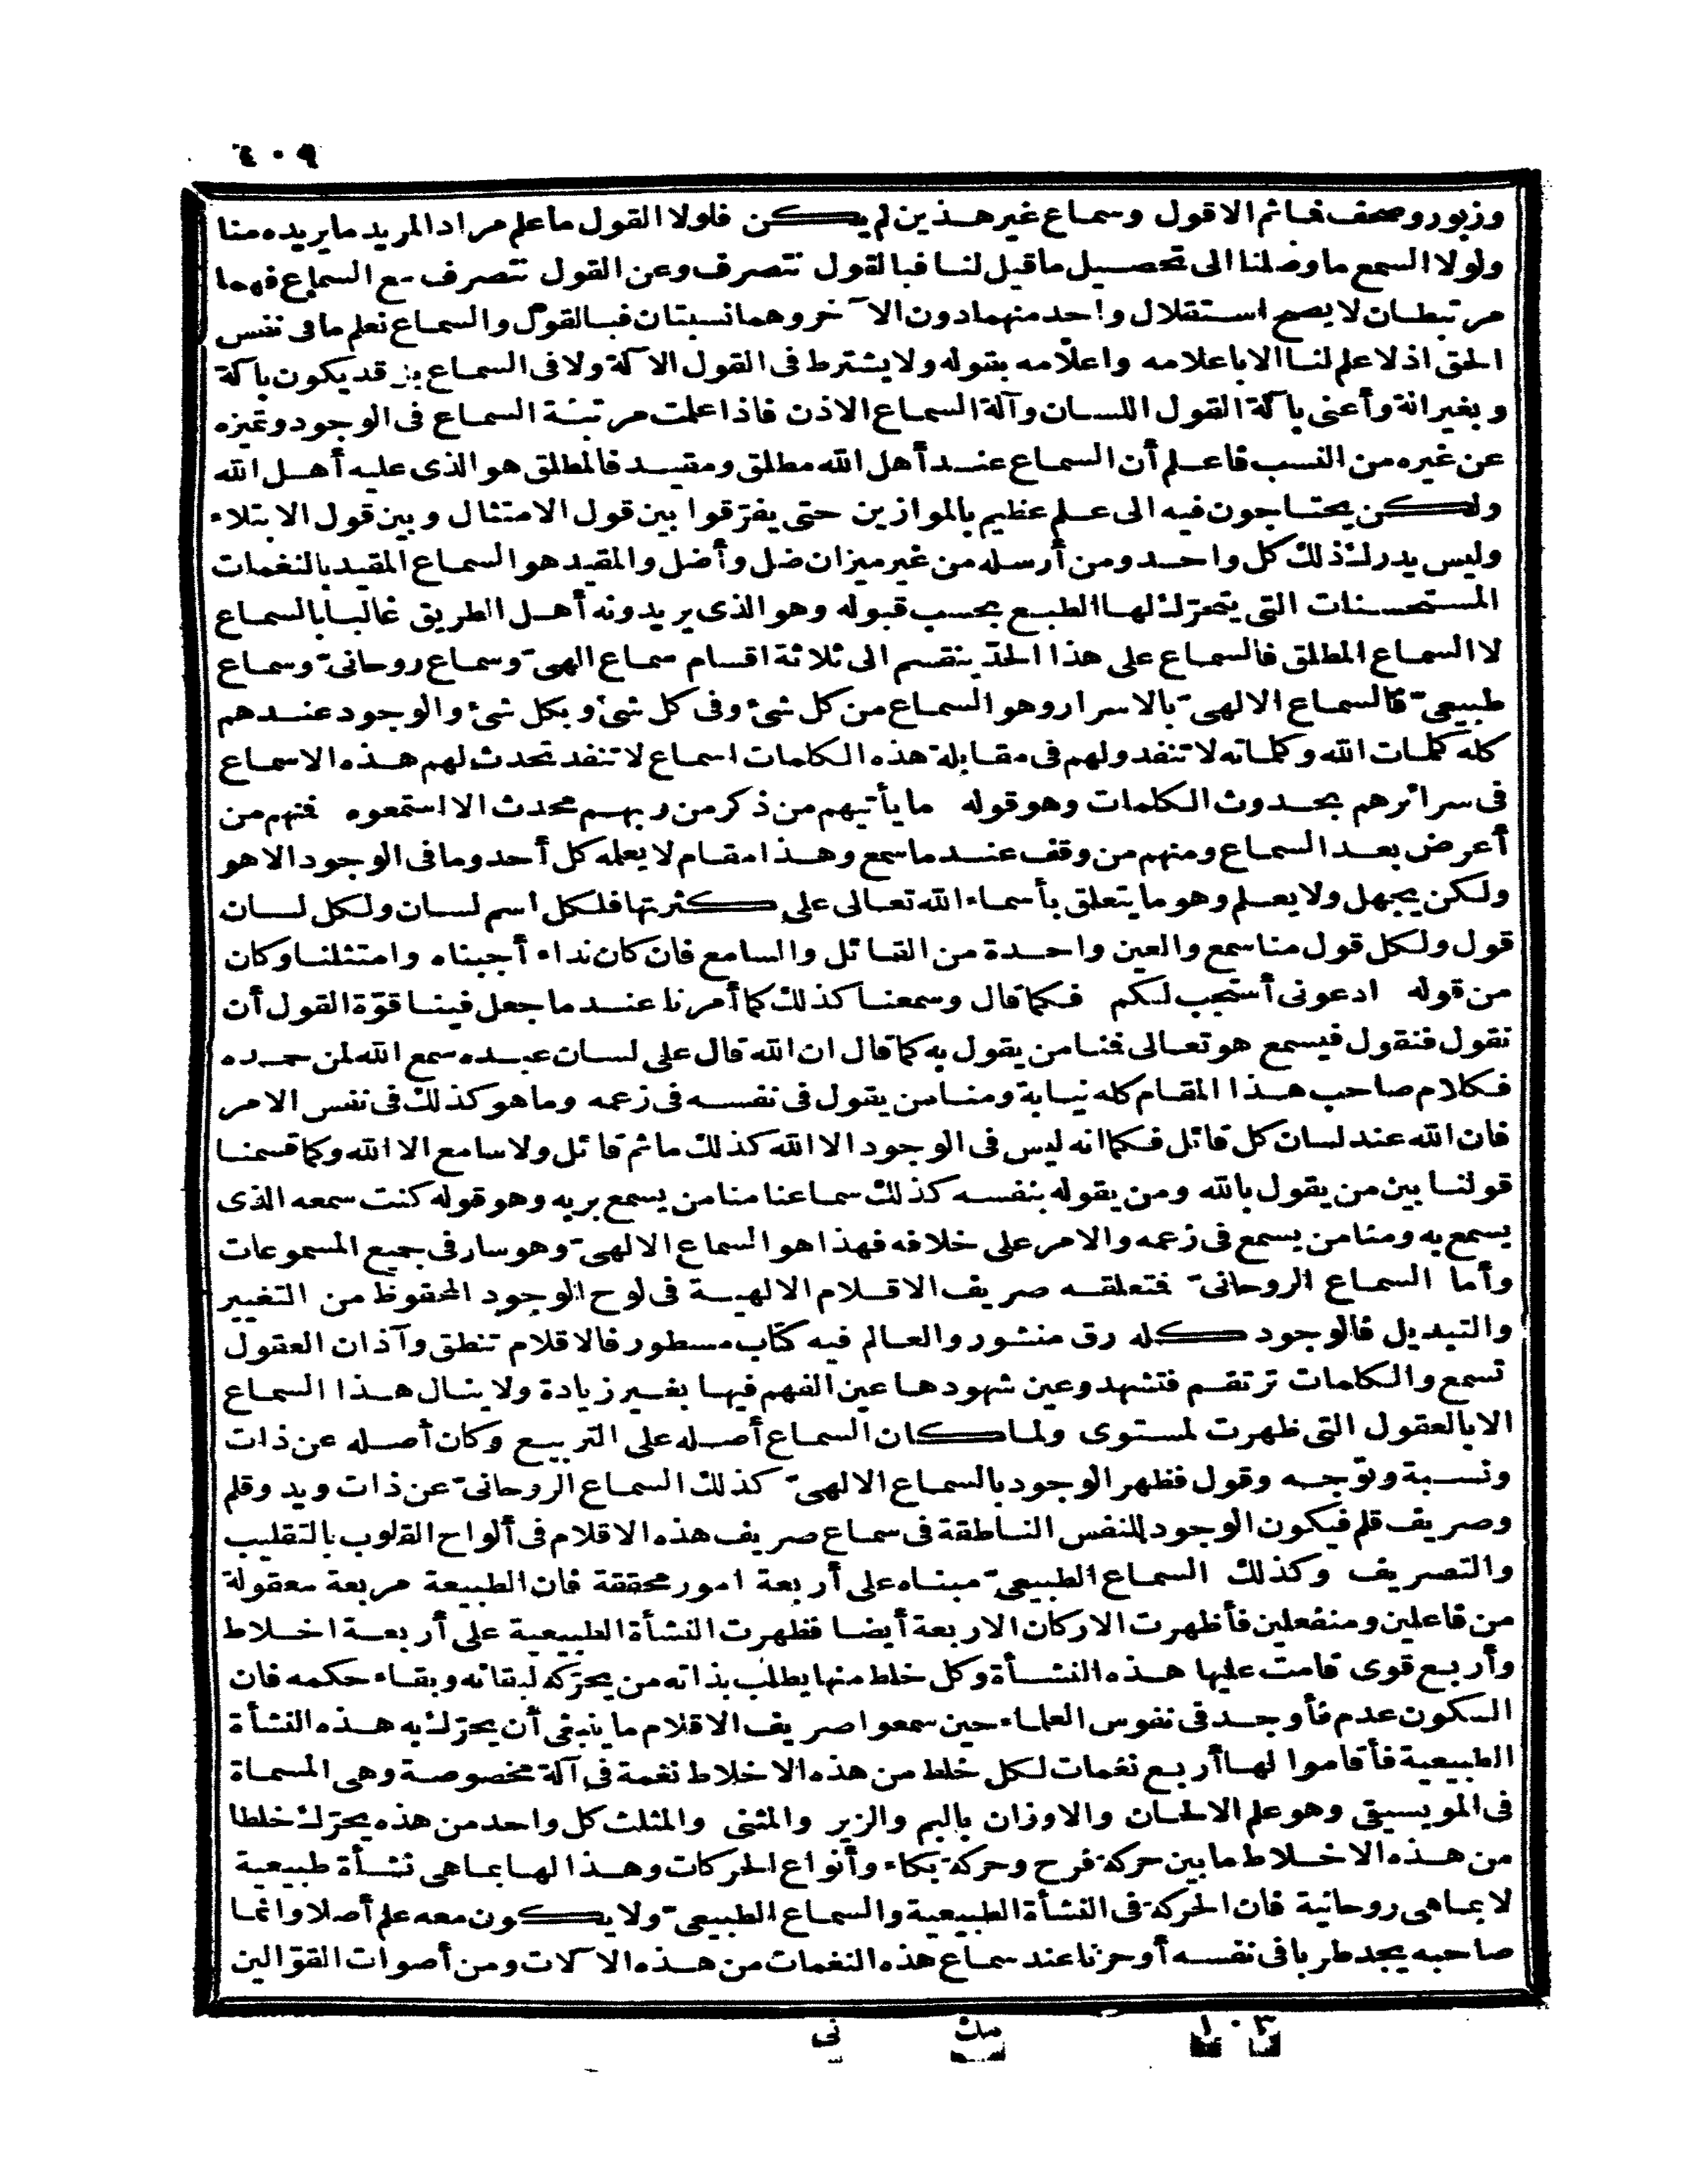 ٤٠٩
وزبور وصحف فما ثم الا قول وسماع غير هذين لم يكن فلولا القول ما علم مراد المريد ما يريده منا
ولولا السمع ما وصلنا الى تحصيل ما قيل لنا فبالقول نتصرف وعن القول نتصرف مع السماع فهما
مرتبطان لا يصح استقلال واحد منهما دون الآخر وهما نسبتان فبالقول والسماع نعلم ما فى نفس
الحق اذ لا علم لنا الا باعلامه واعلامه بقوله ولا يشترط فى القول الآلة ولا فى السماع بل قد يكون بآلة
وبغير آلة وأعنى بآلة القول اللسان وآلة السماع الاذن فاذا علمت مرتبة السماع فى الوجود وتميزه
عن غيره من النسب فاعلم أن السماع عند أهل الله مطلق ومقيد فالمطلق هو الذى عليه أهل الله
ولكن يحتاجون فيه الى علم عظيم بالموازين حتى يفرّقوا بين قول الامتثال وبين قول الابتلاء
وليس يدرك ذلك كل واحد ومن أرسله من غير ميزان ضل وأضل والمقيد هو السماع المقيد بالنغمات
المستحسنات التى يتحرّك لها الطبع بحسب قبوله وهو الذى يريدونه أهل الطريق غالبا بالسماع
لا السماع المطلق فالسماع على هذا الحدّ ينقسم الى ثلاثة اقسام سماع الهىّ وسماع روحانىّ وسماع
طبيعىّ فالسماع الالهىّ بالاسرار وهو السماع من كل شئ وفى كل شئ وبكل شئ والوجود عندهم
كله كلمات الله وكلماته لا تنفد ولهم فى مقابلة هذه الكلمات اسماع لا تنفد تحدث لهم هذه الاسماع
فى سرائرهم بحدوث الكلمات وهو قوله ما يأتيهم من ذكر من ربهم محدث الا استمعوه فمنهم من
أعرض بعد السماع ومنهم من وقف عند ما سمع وهذا مقام لا يعلمه كل أحد وما فى الوجود الا هو
ولكن يجهل ولا يعلم وهو ما يتعلق بأسماء الله تعالى على كثرتها فلكل اسم لسان ولكل لسان
قول ولكل قول منا سمع والعين واحدة من القائل والسامع فان كان نداء أجبناه وامتثلنا وكان
من قوله ادعونى أستجب لكم فكما قال وسمعنا كذلك كما أمرنا عند ما جعل فينا قوّة القول أن
نقول فنقول فيسمع هو تعالى فمنا من يقول به كما قال ان الله قال على لسان عبده سمع الله لمن حمده
فكلام صاحب هذا المقام كله نيابة ومنا من يقول فى نفسه فى زعمه وما هو كذلك فى نفس الامر
فان الله عند لسان كل قائل فكما انه ليس فى الوجود الا الله كذلك ما ثم قائل ولا سامع الا الله وكما قسمنا
قولنا بين من يقول بالله ومن يقوله بنفسه كذلك سماعنا منا من يسمع بربه وهو قوله كنت سمعه الذى
يسمع به ومنا من يسمع فى زعمه والامر على خلافه فهذا هو السماع الالهىّ وهو سار فى جميع المسموعات
وأما السماع الروحانىّ فتعلقه صريف الاقلام الالهية فى لوح الوجود المحفوظ من التغيير
والتبديل فالوجود كله رق منشور والعالم فيه كتاب مسطور فالاقلام تنطق وآذان العقول
تسمع والكلمات ترتقم فتشهد وعين شهودها عين الفهم فيها بغير زيادة ولا ينال هذا السماع
الا بالعقول التى ظهرت لمستوى ولما كان السماع أصله على التربيع وكان أصله عن ذات
ونسبة وتوّجه وقول فظهر الوجود بالسماع الالهىّ كذلك السماع الروحانىّ عن ذات ويد وقلم
وصريف قلم فيكون الوجود للنفس الناطقة فى سماع صريف هذه الاقلام فى ألواح القلوب بالتقليب
والتصريف وكذلك السماع الطبيعىّ مبناه على أربعة امور محققة فان الطبيعة مربعة معقولة
من فاعلين ومنفعلين فأظهرت الاركان الاربعة أيضا فظهرت النشأة الطبيعية على أربعة اخلاط
وأربع قوى قامت عليها هذه النشأة وكل خلط منها يطلب بذاته من يحرّكه لبقائه وبقاء حكمه فان
السكون عدم فأوجد فى نفوس العلماء حين سمعوا صريف الاقلام ما ينبغى أن يحرّك به هذه النشأة
الطبيعية فأقاموا لها أربع نغمات لكل خلط من هذه الاخلاط نغمة فى آلة مخصوصة وهى المسماة
فى المويسيقى وهو علم الالحان والاوزان بالبم والزير والمثنى والمثلث كل واحد من هذه يحرّك خلطا
من هذه الاخلاط ما بين حركة فرح وحركة بكاء وأنواع الحركات وهذا لها بما هى نشأة طبيعية
لا بما هى روحانية فان الحركة فى النشأة الطبيعية والسماع الطبيعىّ ولا يكون معه علم أصلا وانما
صاحبه يجد طربا فى نفسه أو حزنا عند سماع هذه النغمات من هذه الآلات ومن أصوات القوّالين
١٠٣ مك نى